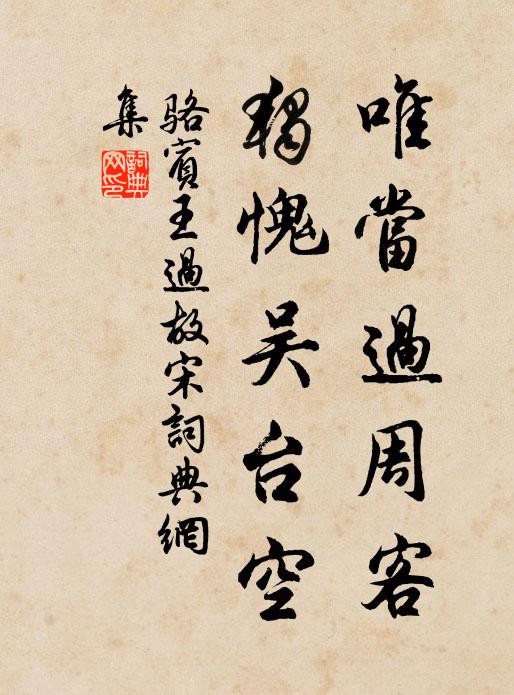 唯當過周客
獨愧吴台空
骆賓王過故宋詞典網
集
詞典
网印